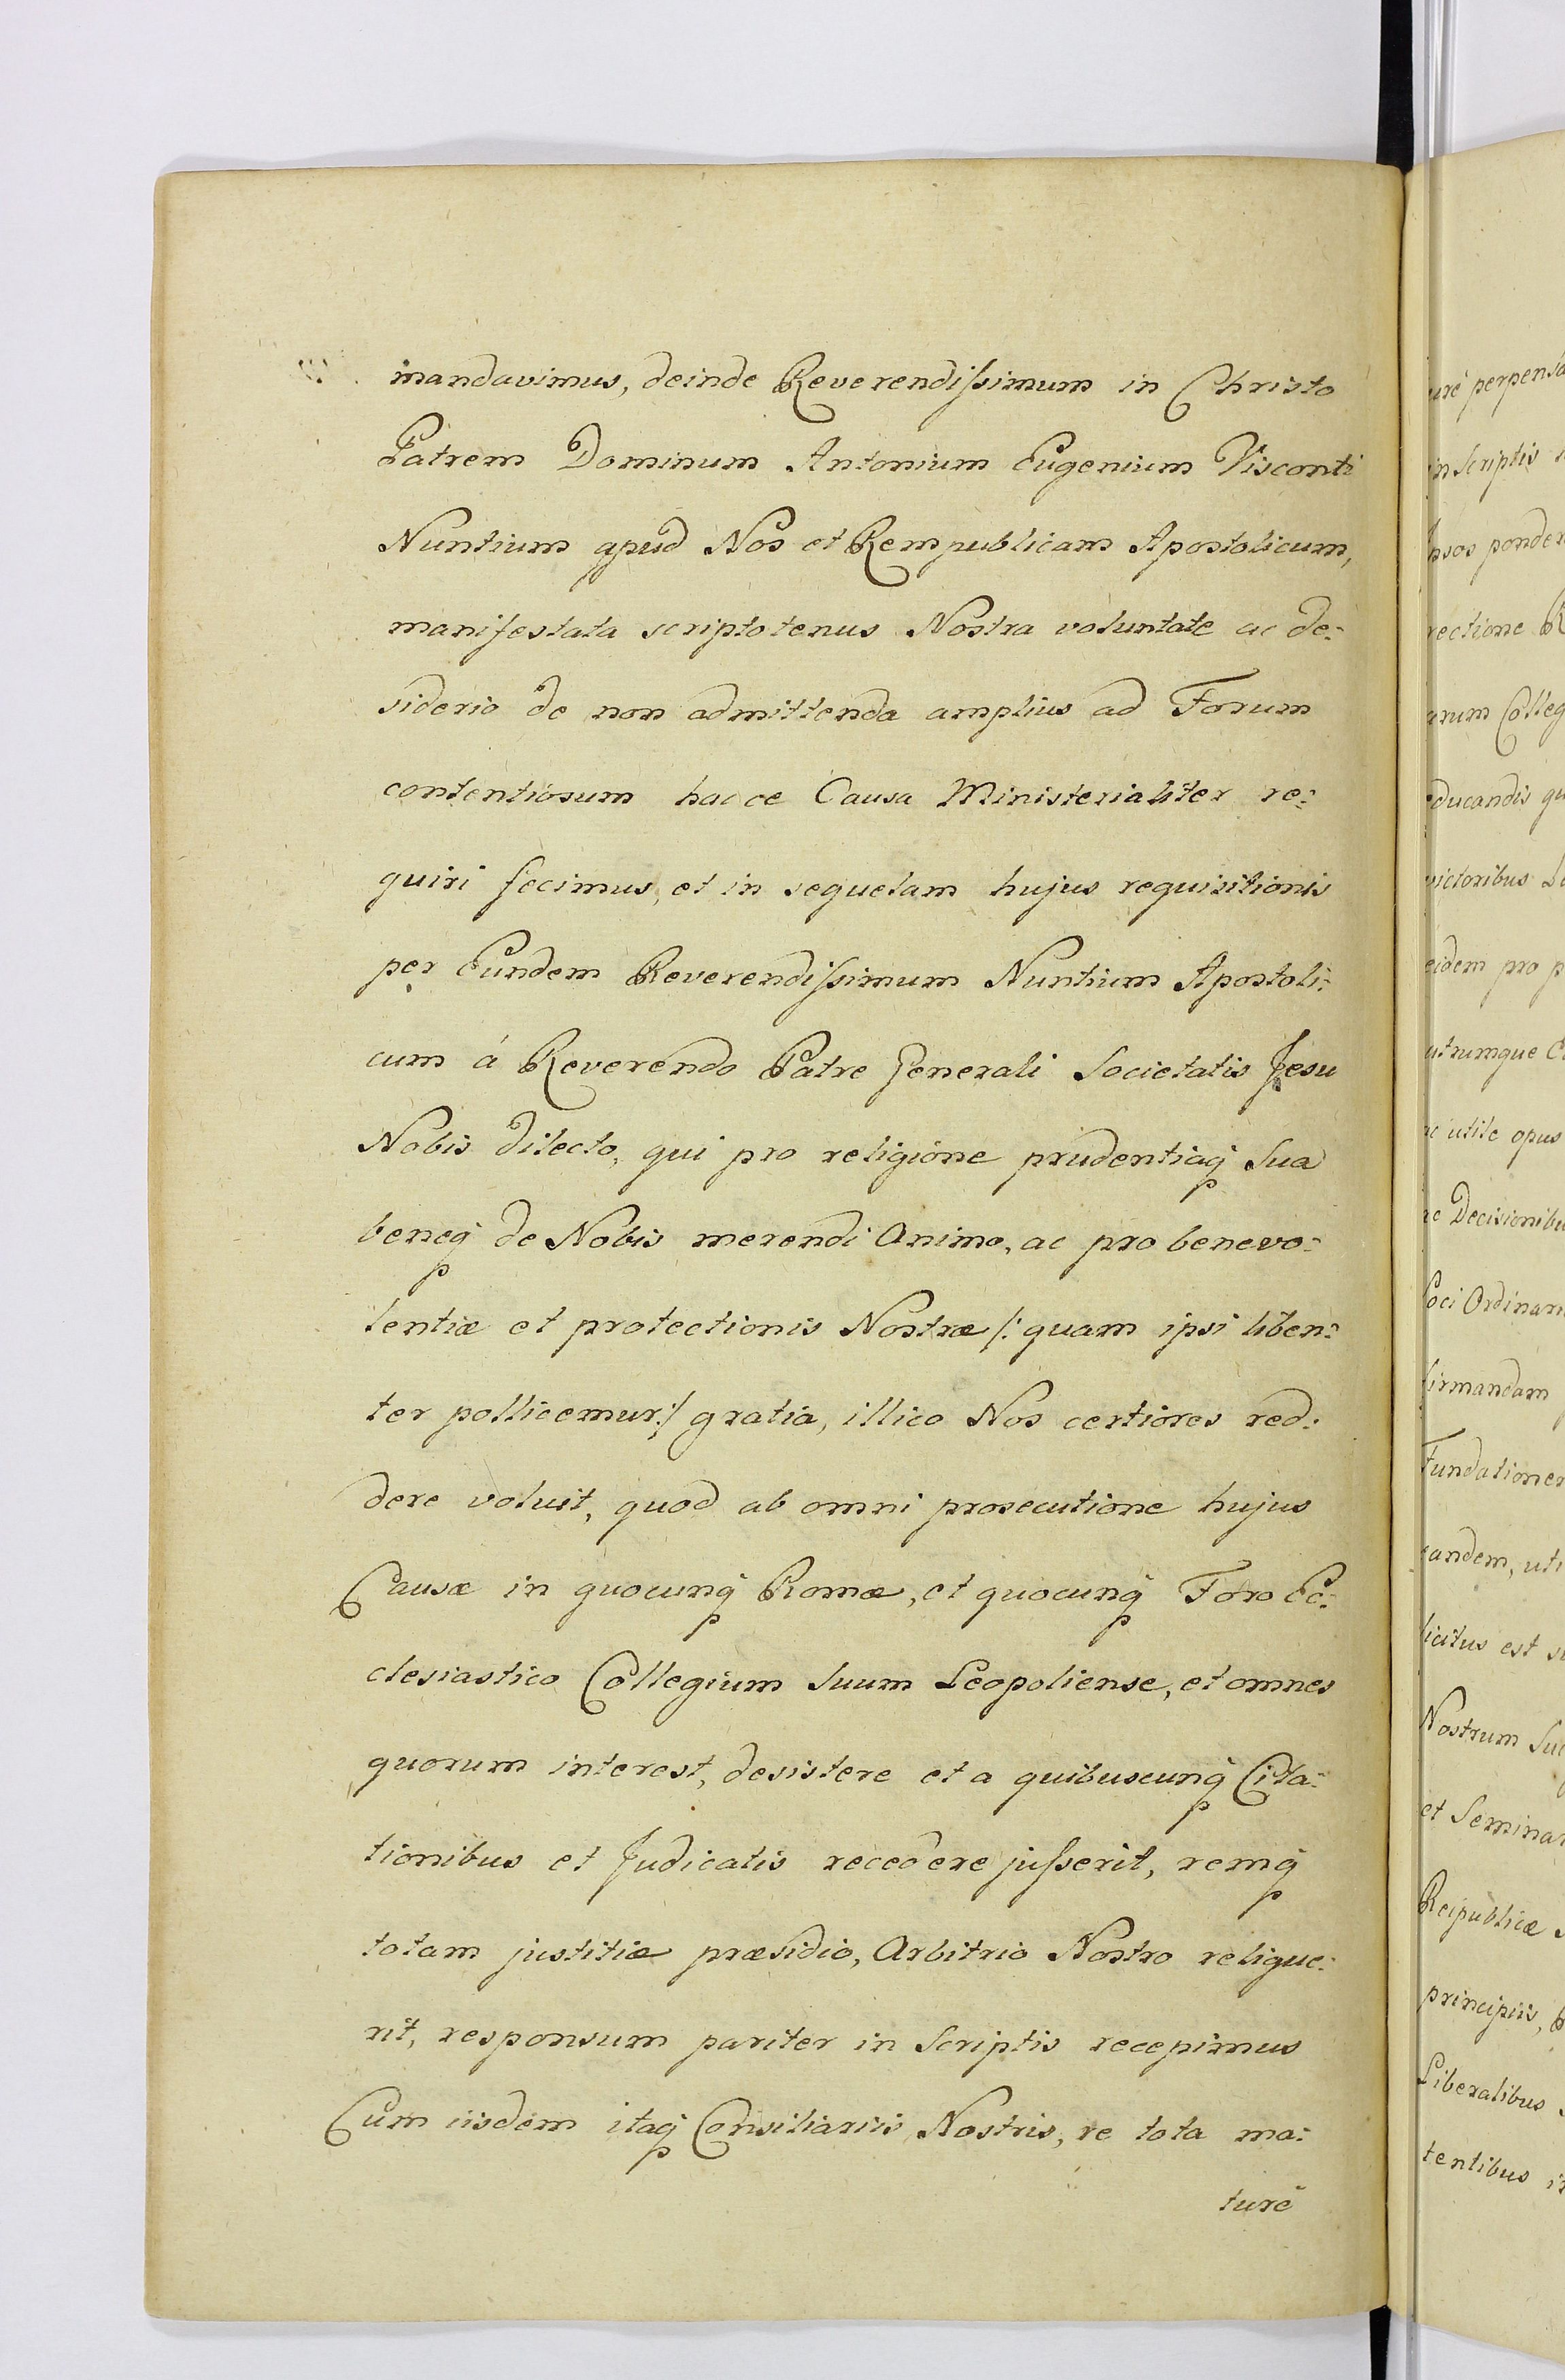 mandavimus, deinde Reverendissimum in Christo
Patrem Dominum Antonium Eugenium Visconti
Nuntium apud Nos et Rempublicam Apostolicum,
manifestata scriptotenus Nostra voluntate ac de-
siderio de non admittenda amplius ad Forum
contentiosum hacce Causa Ministerialiter re-
quiri fecimus, et in sequelam hujus requisitionis
per Eundem Reverendissimum Nuntium Apostoli-
cum á Reverendo Patre Generali Societatis Jesu
Nobis dilecto, qui pro religione prudentiaq Sua
beneq de Nobis merendi Animo, ac pro benevo-
lentiæ et protectionis Nostræ /: quam ipsi liben-
ter pollicemur :/ gratia, illico Nos certiores red-
dere voluit, quod ab omni prosecutione hujus
Causæ in quocunq Romæ, et quocunq Foro Ec-
clesiastico Collegium Suum Leopoliense, et omnes
quorum interest, desistere et a quibuscunq Cita-
tionibus et Judicatis recedere jusserit, remq
totam justitiæ præsidio, Arbitrio Nostro relique-
rit, responsum pariter in Scriptis recepimus
Cum iisdem itaq Consiliariis Nostris, re tota ma-
turé
uré perpensa
in Scriptis
nsos ponder
rectione R
arum Colleg
educandis qu
victoribus L
eidem pro p
utrumque C
ac utile opus
Decisionibu
Loci Ordinari
firmandam
Fundationem
eandem, uti
licitus est s
Nostrum Suc
et Seminar
Reipublicæ
principiis,
Liberalibus
tentibus i